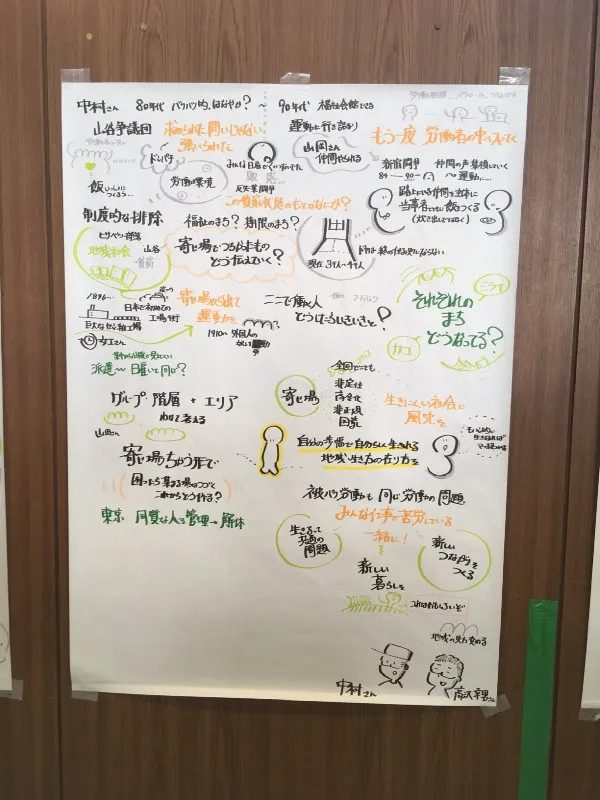 中村さん 80年代 バリバリ的、はなやか?〜
山谷争議団 求められた闘いじゃない
強いられた
ドンパチ
労働環境
飯
敗感
反失業闘争
この貧前状態のもとはなにか?
90年代 福祉会館できる
運動に行き詰り
山岡さん
仲間やられる
もう一度 労働者の中へでてく
新宿闘争 仲間の声集積していく
〜運動…
路上にいる仲間を主体に
当事者 飯つくる
(炊き出しではなく)
制度的な排除
福祉のまち? 期限のまち?
地域社会
山谷
寄せ場でつながったもの
どう伝えていく?
現在 3千人〜4千人
それぞれの
まち
どうなってる?
1896…
日本で初めての
工場
巨大なセンイ工場
女工さん
寄せ場から出て
運動を
1910〜 外国人の
ここで働く人
どうしたらいきいきと?
派遣〜 日雇いと同じ?
グループ・階層 + エリア
わけて考える
山岡さん
寄せ場
全国どこでも
非定住
非正規
生きにくい社会に
風穴を
寄せ場ちゅう形で
困ったら集まる場はつづく
これからどう作る?
自分の歩幅で自分らしく生きれる
地域・生き方の在り方を
東京 同質な人を管理→解体
被バク労働も 同じ労働の問題
みんな仕事で苦労している
生きるって
問題
一緒に!
新しい
暮らしを
新しい
つながりを
つくる
これはおもしろいぞ
地域の見方変わる
中村さん